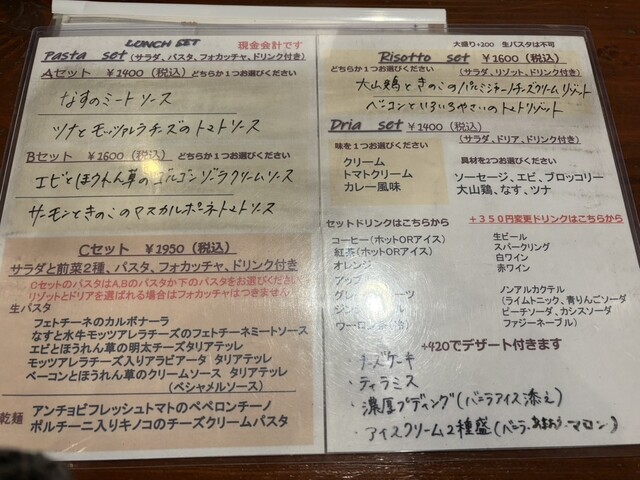 LUNCH SET 現金会計です
Pasta set (サラダ、パスタ、フォカッチャ、ドリンク付き)
Aセット ￥1400(税込) どちらか1つお選びください
なすのミートソース
ツナとモッツァレラチーズのトマトソース
Bセット ￥1600(税込) どちらか1つお選びください
エビとほうれん草のゴルゴンゾーラクリームソース
サーモンときのこのマスカルポーネトマトソース
Cセット ￥1950(税込)
サラダと前菜2種、パスタ、フォカッチャ、ドリンク付き
CセットのパスタはA,Bのパスタか下のパスタをお選びください
リゾットとドリアを選ばれる場合はフォカッチャはつきません
生パスタ
フェトチーネのカルボナーラ
なすと水牛モッツァレラチーズのフェトチーネミートソース
エビとほうれん草の明太チーズタリアテッレ
モッツァレラチーズ入りアラビアータ タリアテッレ
ベーコンとほうれん草のクリームソース タリアテッレ
(ベシャメルソース)
乾麺 アンチョビフレッシュトマトのペペロンチーノ
ポルチーニ入りキノコのチーズクリームパスタ
大盛り+200 生パスタは不可
Risotto set ￥1600(税込)
どちらか1つお選びください (サラダ、リゾット、ドリンク付き)
大山鶏ときのこのパルミジャーノチーズクリームリゾット
ベーコンといろいろやさいのトマトリゾット
Dria set ￥1400(税込)
(サラダ、ドリア、ドリンク付き)
味を1つお選びください 具材を2つお選びください
クリーム ソーセージ、エビ、ブロッコリー
トマトクリーム 大山鶏、なす、ツナ
カレー風味
セットドリンクはこちらから +350円変更ドリンクはこちらから
コーヒー(ホットORアイス) 生ビール
紅茶(ホットORアイス) スパークリング
オレンジ 白ワイン
アップ 赤ワイン
グレ ーツ ノンアルカクテル
ジン (ライムトニック、青りんごソーダ
ウーロン ピーチソーダ、カシスソーダ
ファジーネーブル)
+420でデザート付きます
チーズケーキ
・ティラミス
・濃厚プディング(バニラアイス添え)
・アイスクリーム2種盛(バニラ、 マロン)